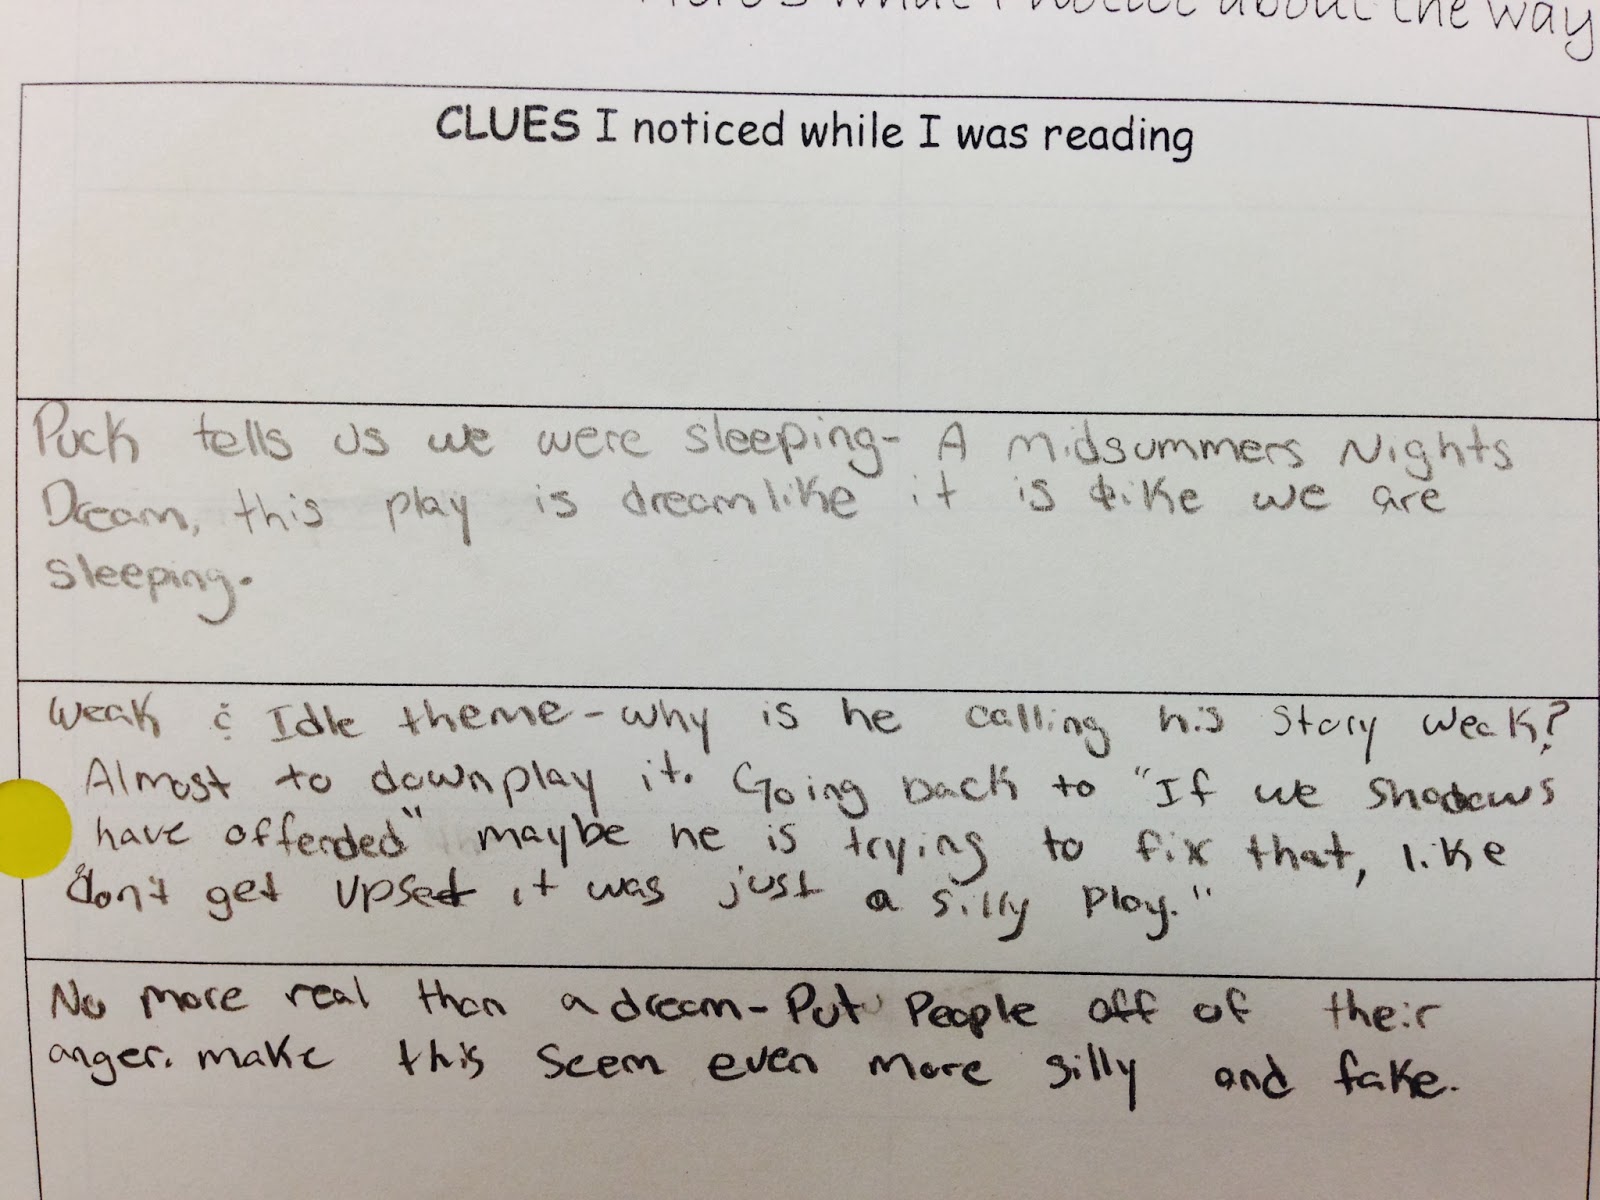 Here's what I notice about the way
CLUES I noticed while I was reading
Puck tells us we were sleeping- A Midsummers Nights
Dream, this play is dreamlike it is like we are
sleeping.
Weak & Idle theme - why is he calling his story weak?
Almost to downplay it. Going back to "If we shadows
have offended" maybe he is trying to fix that, like
"don't get upset it was just a silly play."
No more real than a dream - Put People off of their
anger. make this seem even more silly and fake.